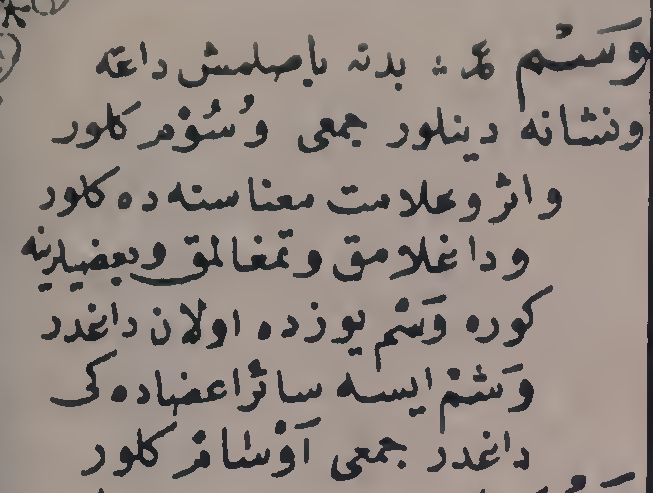 وَسْم ع : بدنه باصلمش داغه
ونشانه دينلور جمعى وُسُوْم كلور
واثر وعلامت معناسنه ده كلور
وداغلامق وتمغالمق وبعضيلرينه
كوره وَسْم يوزده اولان داغدر
وَشْم ايسه سائر اعضاده كى
داغدر جمعى اَوْشَامْ كلور